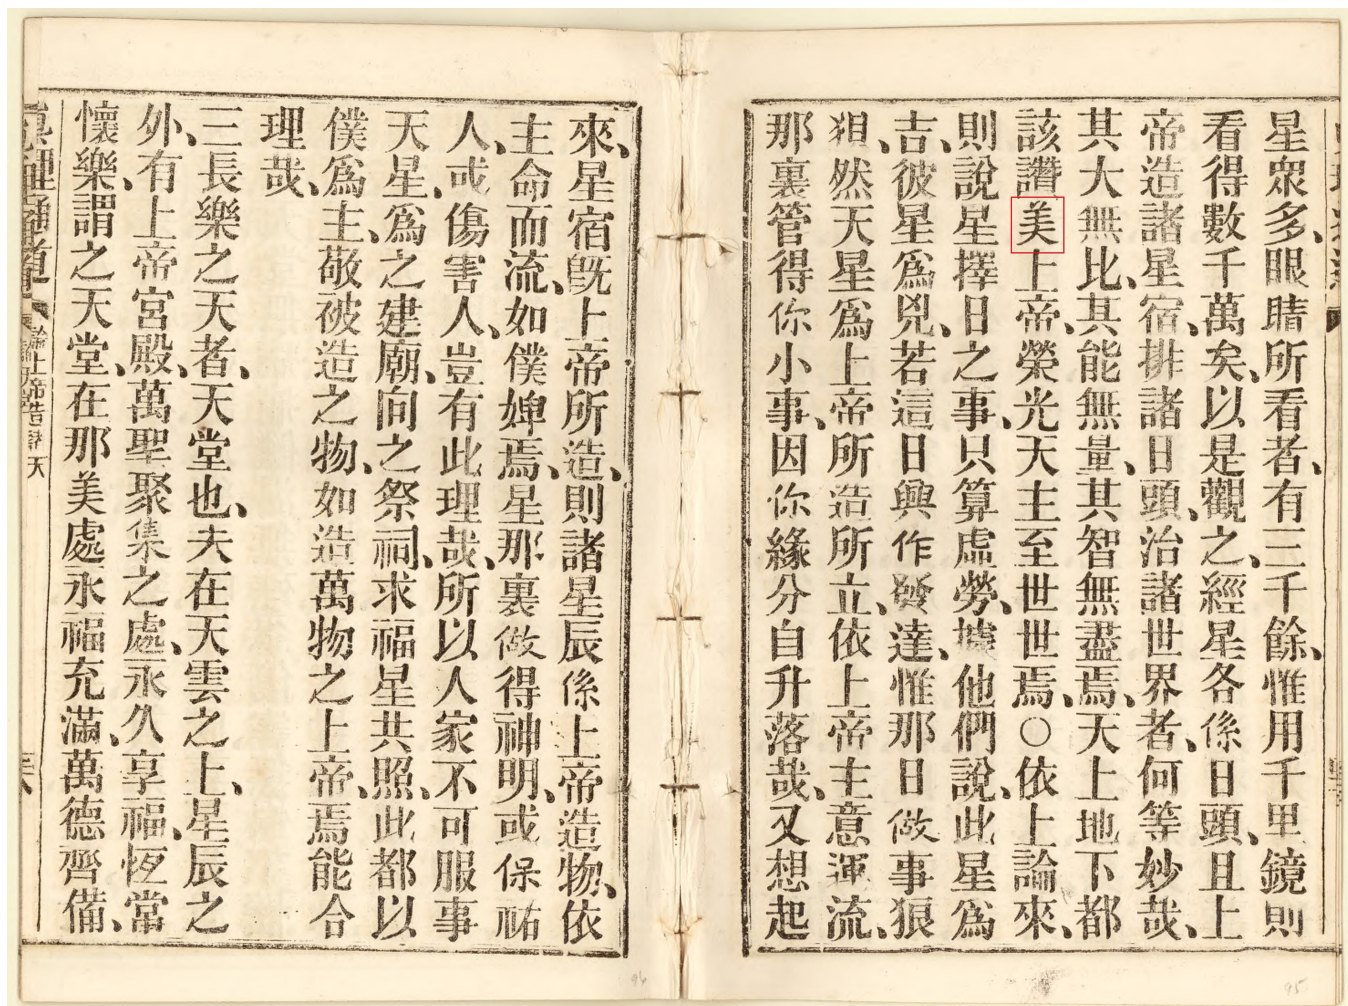 星眾多、眼睛所看者、有三千餘、惟用千里鏡則
看得數千萬矣、以是觀之、經星各係日頭、且上
帝造諸星宿、排諸日頭、治諸世界者、何等妙哉、
其大無比、其能無量、其智無盡焉、天上地下都
該讚美上帝、榮光天主至世世焉、○依上論來、
則說星擇日之事、只算虛勞、據他們說、此星為
吉、彼星為兇、若這日興作發達、惟那日做事狼
狽、然天星為上帝所造所立、依上帝主意運流、
那裏管得你小事、因你緣分自升落哉、又想起
來、星宿旣上帝所造、則諸星辰係上帝造物、依
主命而流、如僕婢焉、星那裏做得神明、或保祐
人、或傷害人、豈有此理哉、所以人家不可服事
天星、為之建廟、向之祭祠、求福星共照、此都以
僕為主、敬被造之物、如造萬物之上帝、焉能合
理哉、
三長樂之天者、天堂也、夫在天雲之上、星辰之
外、有上帝宮殿、萬聖聚集之處、永久享福、恆常
懷樂、謂之天堂、在那美處永福充滿、萬德齊備、
真理通道
論上帝造諸天
96
95